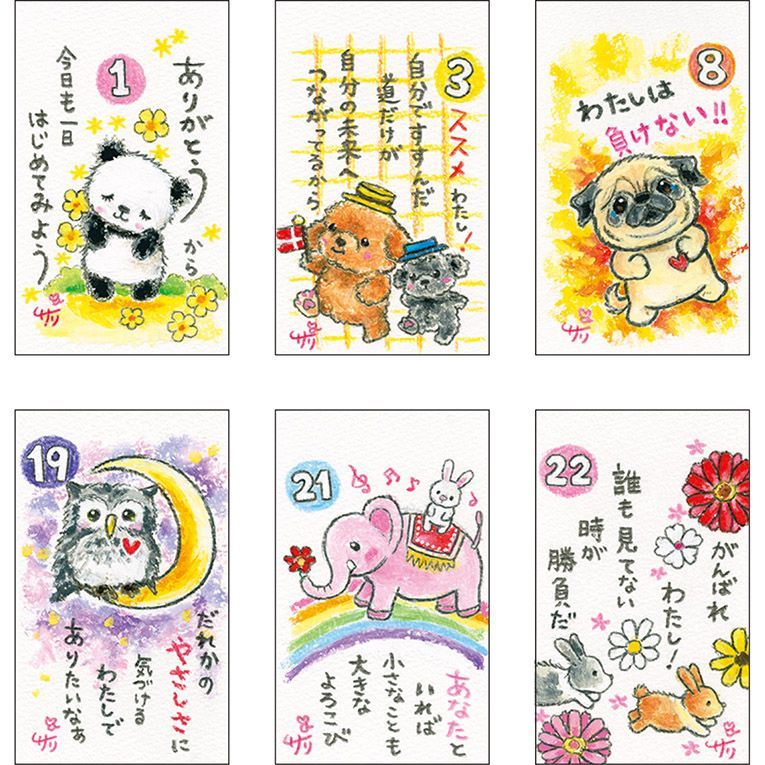 1
ありがとう
から
今日も一日
はじめてみよう
サリ
3
ススメ わたし!
自分ですすんだ
道だけが
自分の未来へ
つながってるから
サリ
8
わたしは
負けない!!
サリ
19
だれかの
やさしさに
気づける
わたしで
ありたいなぁ
サリ
21
あなたと
いれば
小さなことも
大きな
よろこび
サリ
22
がんばれ
わたし!
誰も見てない
時が
勝負だ
サリ